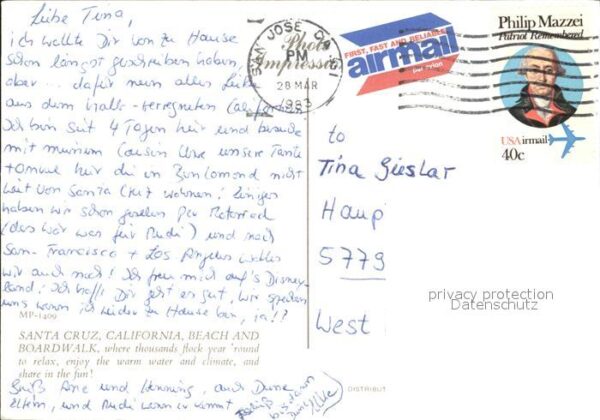 Liebe Tina,
ich wollte Dir von zu Hause
schon längst geschrieben haben,
aber dafür nun alles Liebe
aus dem kalt-verregneten Californien
Ich bin seit 4 Tagen hier und besuche
mit meinem Cousin Uwe unsere Tante
+ Omme hier die in Benlomond nicht
weit von Santa Cruz wohnen! Einiges
haben wir schon gesehen per Motorrad
(das wär was für Rudi) und nach
San-Francisco + Los Angeles wollen
wir auch noch! Ich freu mich auf's Disney-
land. Ich hoff Dir geht es gut, wir sprechen
uns wenn ich wieder zu Hause bin, ja!?
MP-1409
SANTA CRUZ, CALIFORNIA, BEACH AND
BOARDWALK, where thousands flock year 'round
to relax, enjoy the warm water and climate, and
share in the fun!
Grüß und Henning, auch Deine
Eltern, und Rudi wenn er kommt
bis dann
Deine
SAN JOSE CA
PM
28 MAR
1983
Photo
Impression
FIRST, FAST AND RELIABLE
airmail
par avion
Philip Mazzei
Patriot Remembered
USAirmail
40c
to
Tina Gieslar
Haup
5779
West
privacy protection
Datenschutz
DISTRIBUT